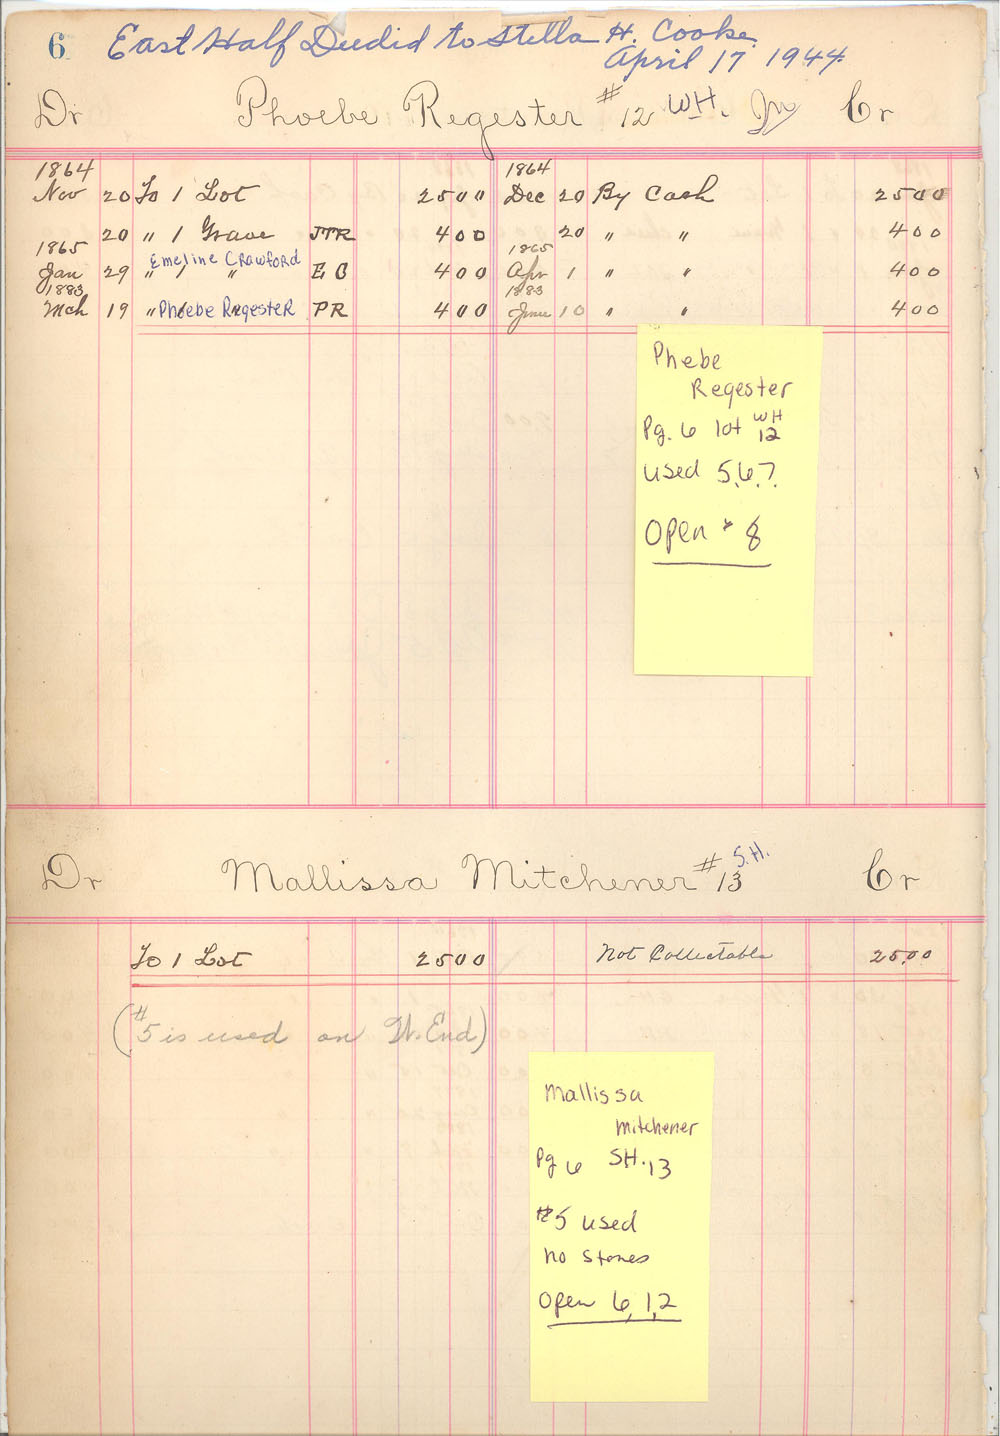 6 East Half Deedid to Stella H. Cooke
April 17 1944
Dr Phoebe Regester #12 W.H. Cr
1864 1864
Nov 20 To 1 Lot 2500 Dec 20 By Cash 2500
20 " 1 Grave JTR 400 20 " " 400
1865 Emeline Crawford 1865
Jan 29 " 1 " E C 400 Apr 1 " " 400
1883 1883
Mch 19 " Phoebe Regester PR 400 June 10 " " 400
Phebe
Regester
Pg. 6 lot WH 12
used 5,6,7
Open # 8
Dr Mallissa Mitchener #13 S.H. Cr
To 1 Lot 2500 Not Collectable 25.00
(#5 is used on W. End)
Mallissa
Mitchener
Pg 6 SH. 13
#5 used
no stones
Open 6, 1, 2